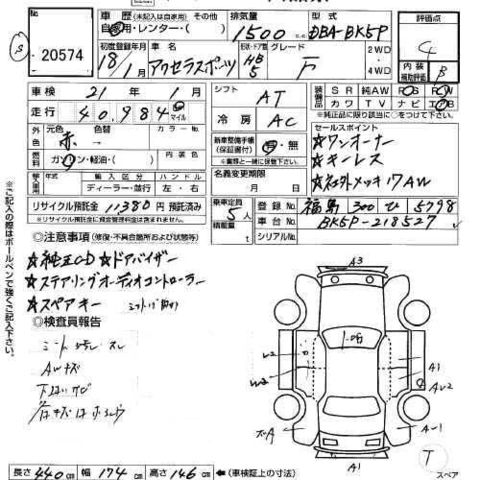 No.
20574
車歴 (未記入は自家用) その他
自家用・レンター( )
排気量
1500 cc
型式
DBA-BK5P
評価点
4
初度登録年月
18/1
車名
アクセラスポーツ
形状・ドア数
HB
5
グレード
F
2WD
4WD
内装
補助評価
B
車検 21年 1月
シフト
AT
装備品
SR 純AW PS PW
カワ TV ナビ エアB
※純正品に限り該当に○をつけて下さい。
走行 40,984
マイル
冷房
AC
セールスポイント
外色
元色
赤
色替
カラーNo.
新車整備手帳
(保証書付)
有・無
※実績と一緒に保管
☆ワンオーナー
☆キーレス
☆社外メッキ17AW
燃料
ガソリン・軽油・( )
内装色
名義変更期限
月 日
輸入車
輸入区分
ディーラー・並行
ハンドル
左・右
リサイクル預託金 11380 円 預託済み
乗車定員
5人
積載量
登録No. 福島 300 ひ 5798
車台No. BK5P-218527
シリアルNo.
◎注意事項 (修復・不具合箇所および状態等)
☆純正CD ☆ドアバイザー
☆ステアリングオーディオコントローラー
☆スペアキー
◎検査員報告
シート汚レ スレ
AWキズ
下廻りサビ
※ご記入の際はボールペンで強くご記入下さい。
A3
A1
A1
スペア
長さ 440 cm 幅 174 cm 高さ 146 cm ←(車検証上の寸法)